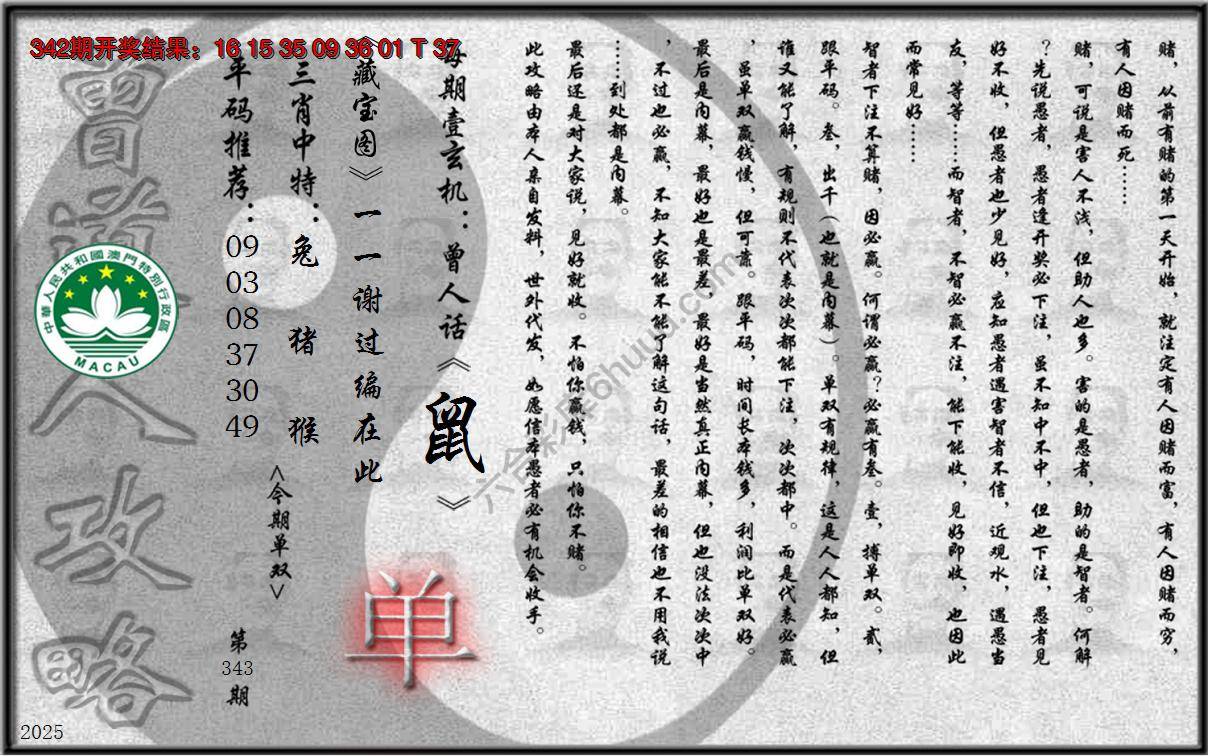 342期开奖结果：16 15 35 09 36 01 T 37
赌，从前有赌的第一天开始，就注定有人因赌而富，有人因赌而穷，
有人因赌而死……
赌，可说是害人不浅，但助人也多。害的是愚者，助的是智者。何解
？先说愚者，愚者逢开奖必下注，虽不知中不中，但也下注，愚者见
好不收，但愚者也少见好，应知愚者遇害智者不信，近观水，遇愚当
友，等等……而智者，不智必赢不注，能下能收，见好即收，也因此
而常见好……
智者下注不算赌，因必赢。何谓必赢？必赢有叁。壹，搏单双。贰，
跟平码。叁，出千（也就是内幕）。单双有规律，这是人人都知，但
谁又能了解，有规则不代表次次都能下注，次次都中。而是代表必赢
，虽单双赢钱慢，但可靠。跟平码，时间长本钱多，利润比单双好。
最后是内幕，最好也是最差，最好是当然真正内幕，但也没法次次中
，不过也必赢，不知大家能不能了解这句话，最差的相信也不用我说
……到处都是内幕。
最后还是对大家说，见好就收。不怕你赢钱，只怕你不赌。
此攻略由本人亲自发料，世外代发，如愿信本愚者必有机会收手。
每期壹玄机：曾人话《鼠》
《藏宝图》一一谢过编在此
三肖中特：兔 猪 猴
<今期单双>
单
平码推荐：
09
03
08
37
30
49
第
343
期
曾道人攻略
中華人民共和國澳門特別行政區
MACAU
六合彩库6huuu.com
2025